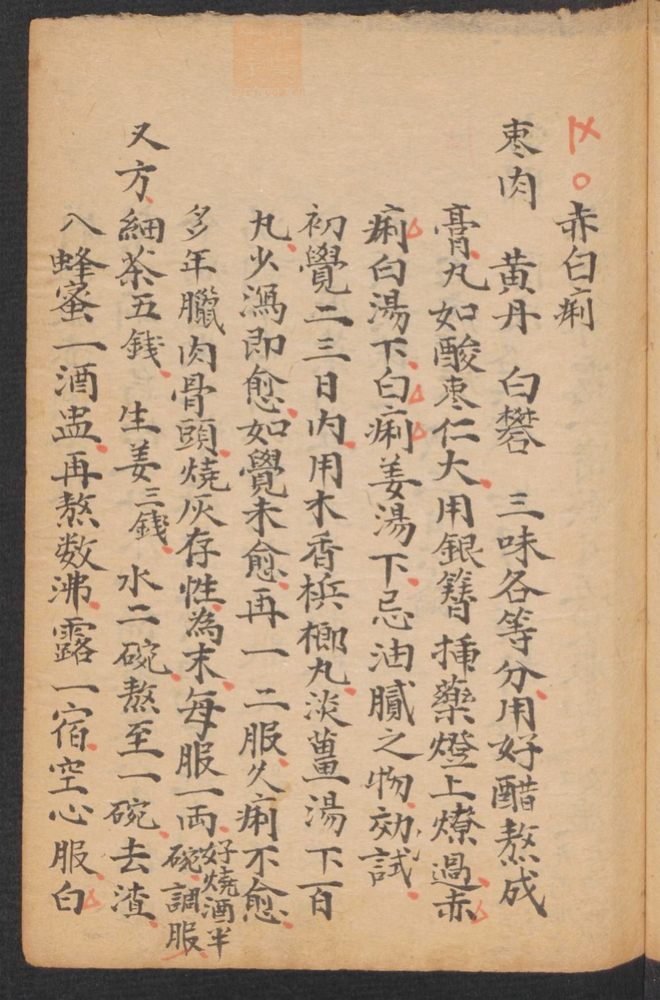 赤白痢
枣肉 黄丹 白礬 三味各等分用好醋熬成
膏丸如酸枣仁大用銀簪揷藥燈上燎過赤
痢白湯下白痢姜湯下忌油膩之物効試
初覺二三日内用木香梹榔丸淡薑湯下百
丸少瀉即愈如覺未愈再一二服久痢不愈
多年臘肉骨頭燒灰存性為末每服一両好燒酒半碗調服
又方細茶五錢 生姜三錢 水二碗熬至一碗去渣
入蜂蜜一酒盅再熬数沸露一宿空心服白